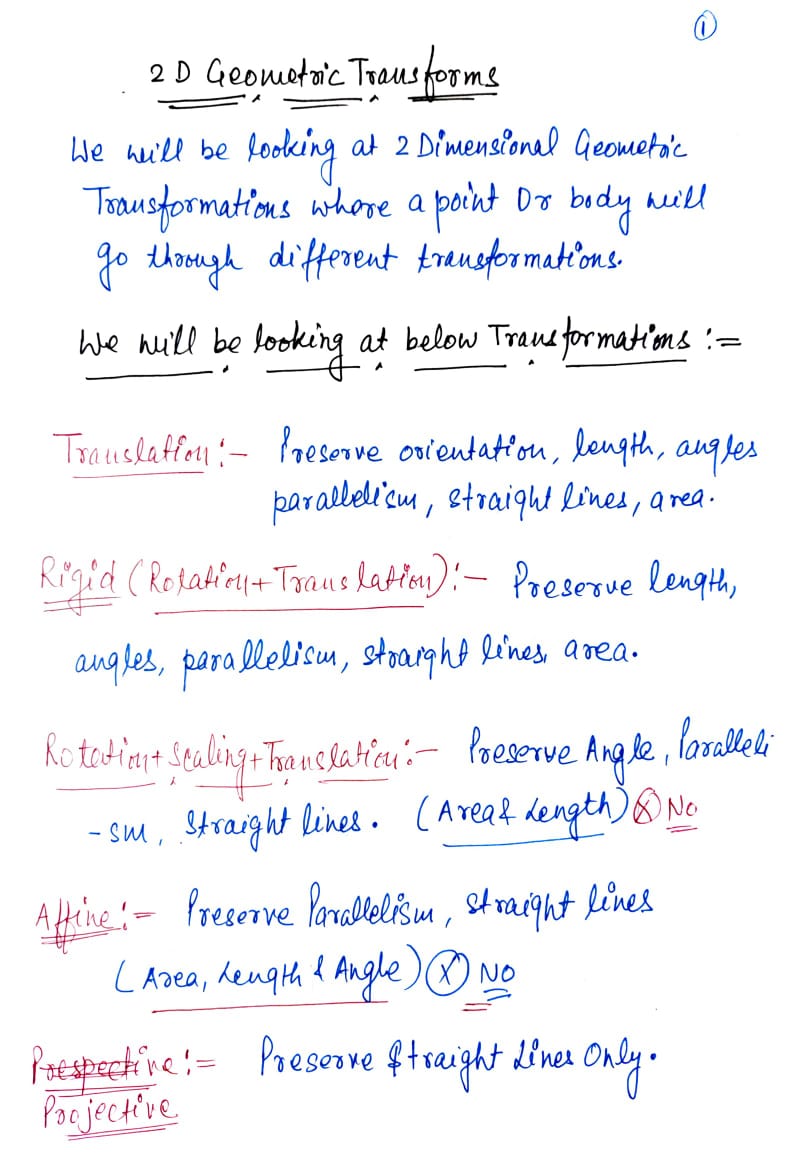 ①
2 D Geometric Transforms
We will be looking at 2 Dimensional Geometric
Transformations where a point Or body will
go through different transformations.
We will be looking at below Transformations :=
Translation :- Preserve orientation, length, angles
parallelism, straight lines, area.
Rigid (Rotation + Translation) :- Preserve length,
angles, parallelism, straight lines, area.
Rotation + Scaling + Translation :- Preserve Angle, Paralleli
-sm, straight lines. (Area & Length) ⓧ No
Affine :- Preserve Parallelism, straight lines
(Area, Length & Angle) ⓧ NO
Prespective := Preserve Straight Lines Only.
Projective